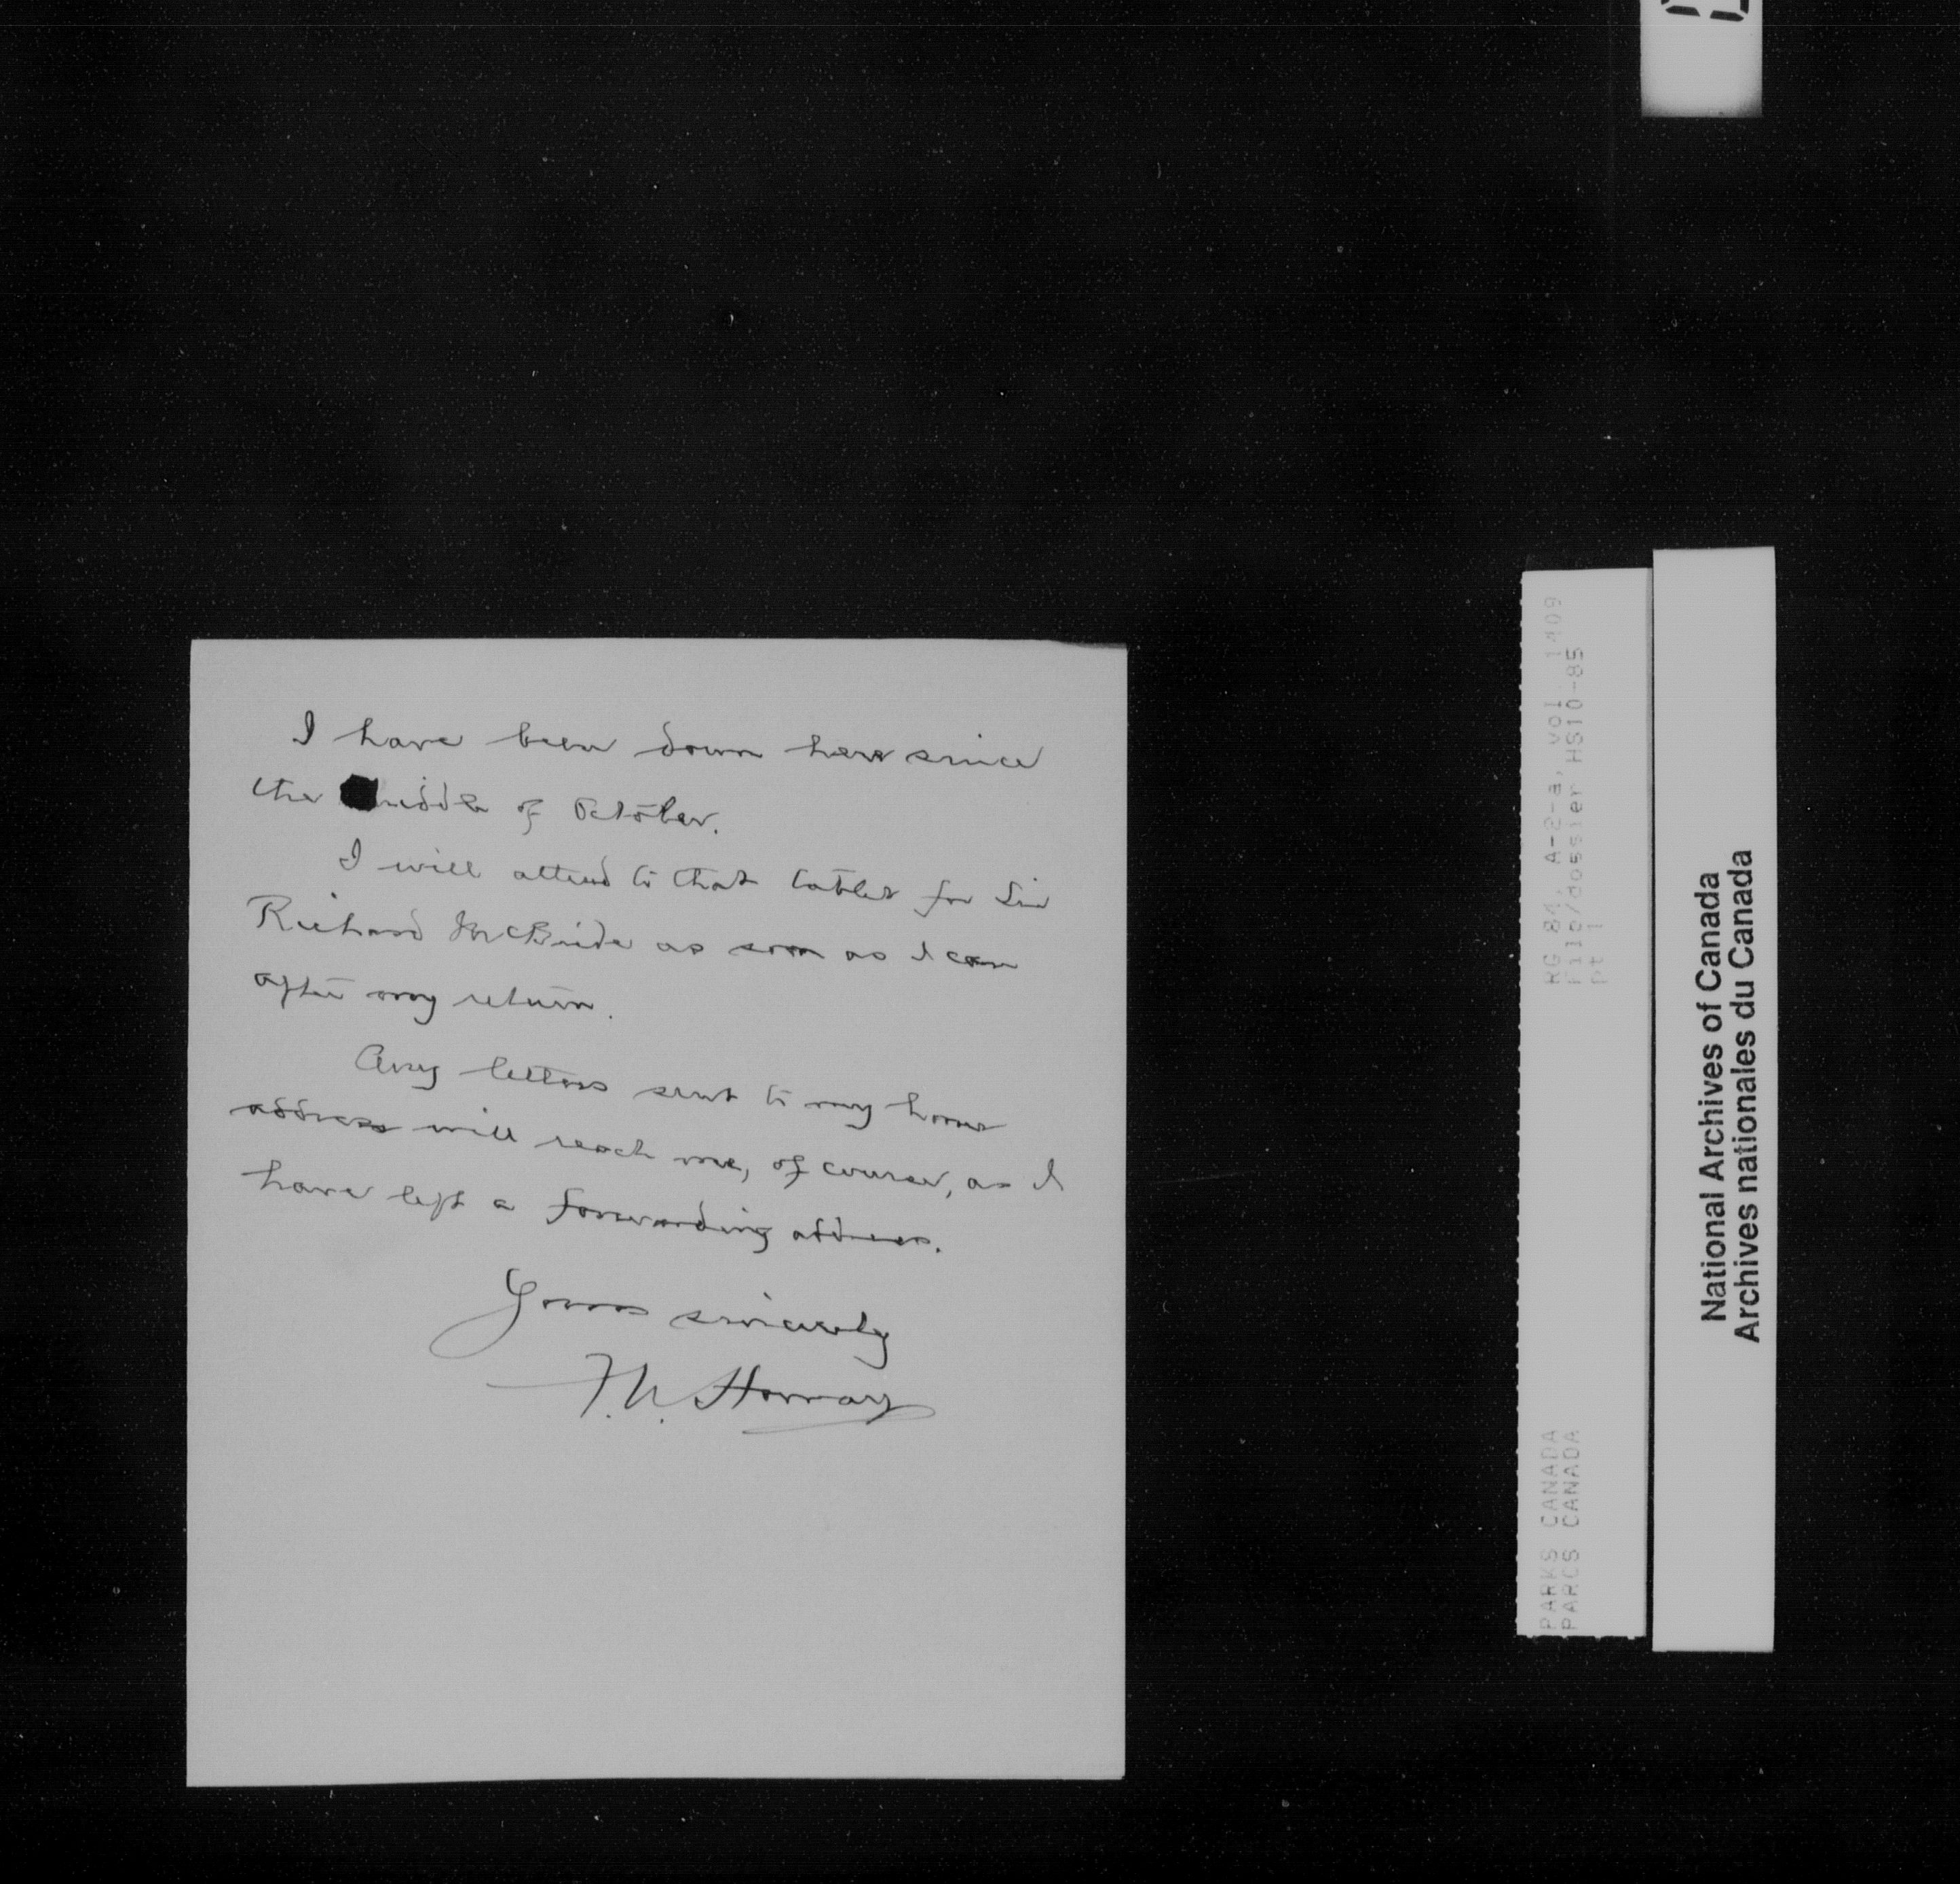 I have been down here since
the middle of October.
I will attend to that tablet for Sir
Richard McBride as soon as I can
after my return.
Any letters sent to my home
address will reach me, of course, as I
have left a forwarding address.
Yours sincerely
F.W. Howay
RG 84, A-2-a, vol 1409
file/dossier HS10-85
pt 1
PARKS CANADA
PARCS CANADA
National Archives of Canada
Archives nationales du Canada